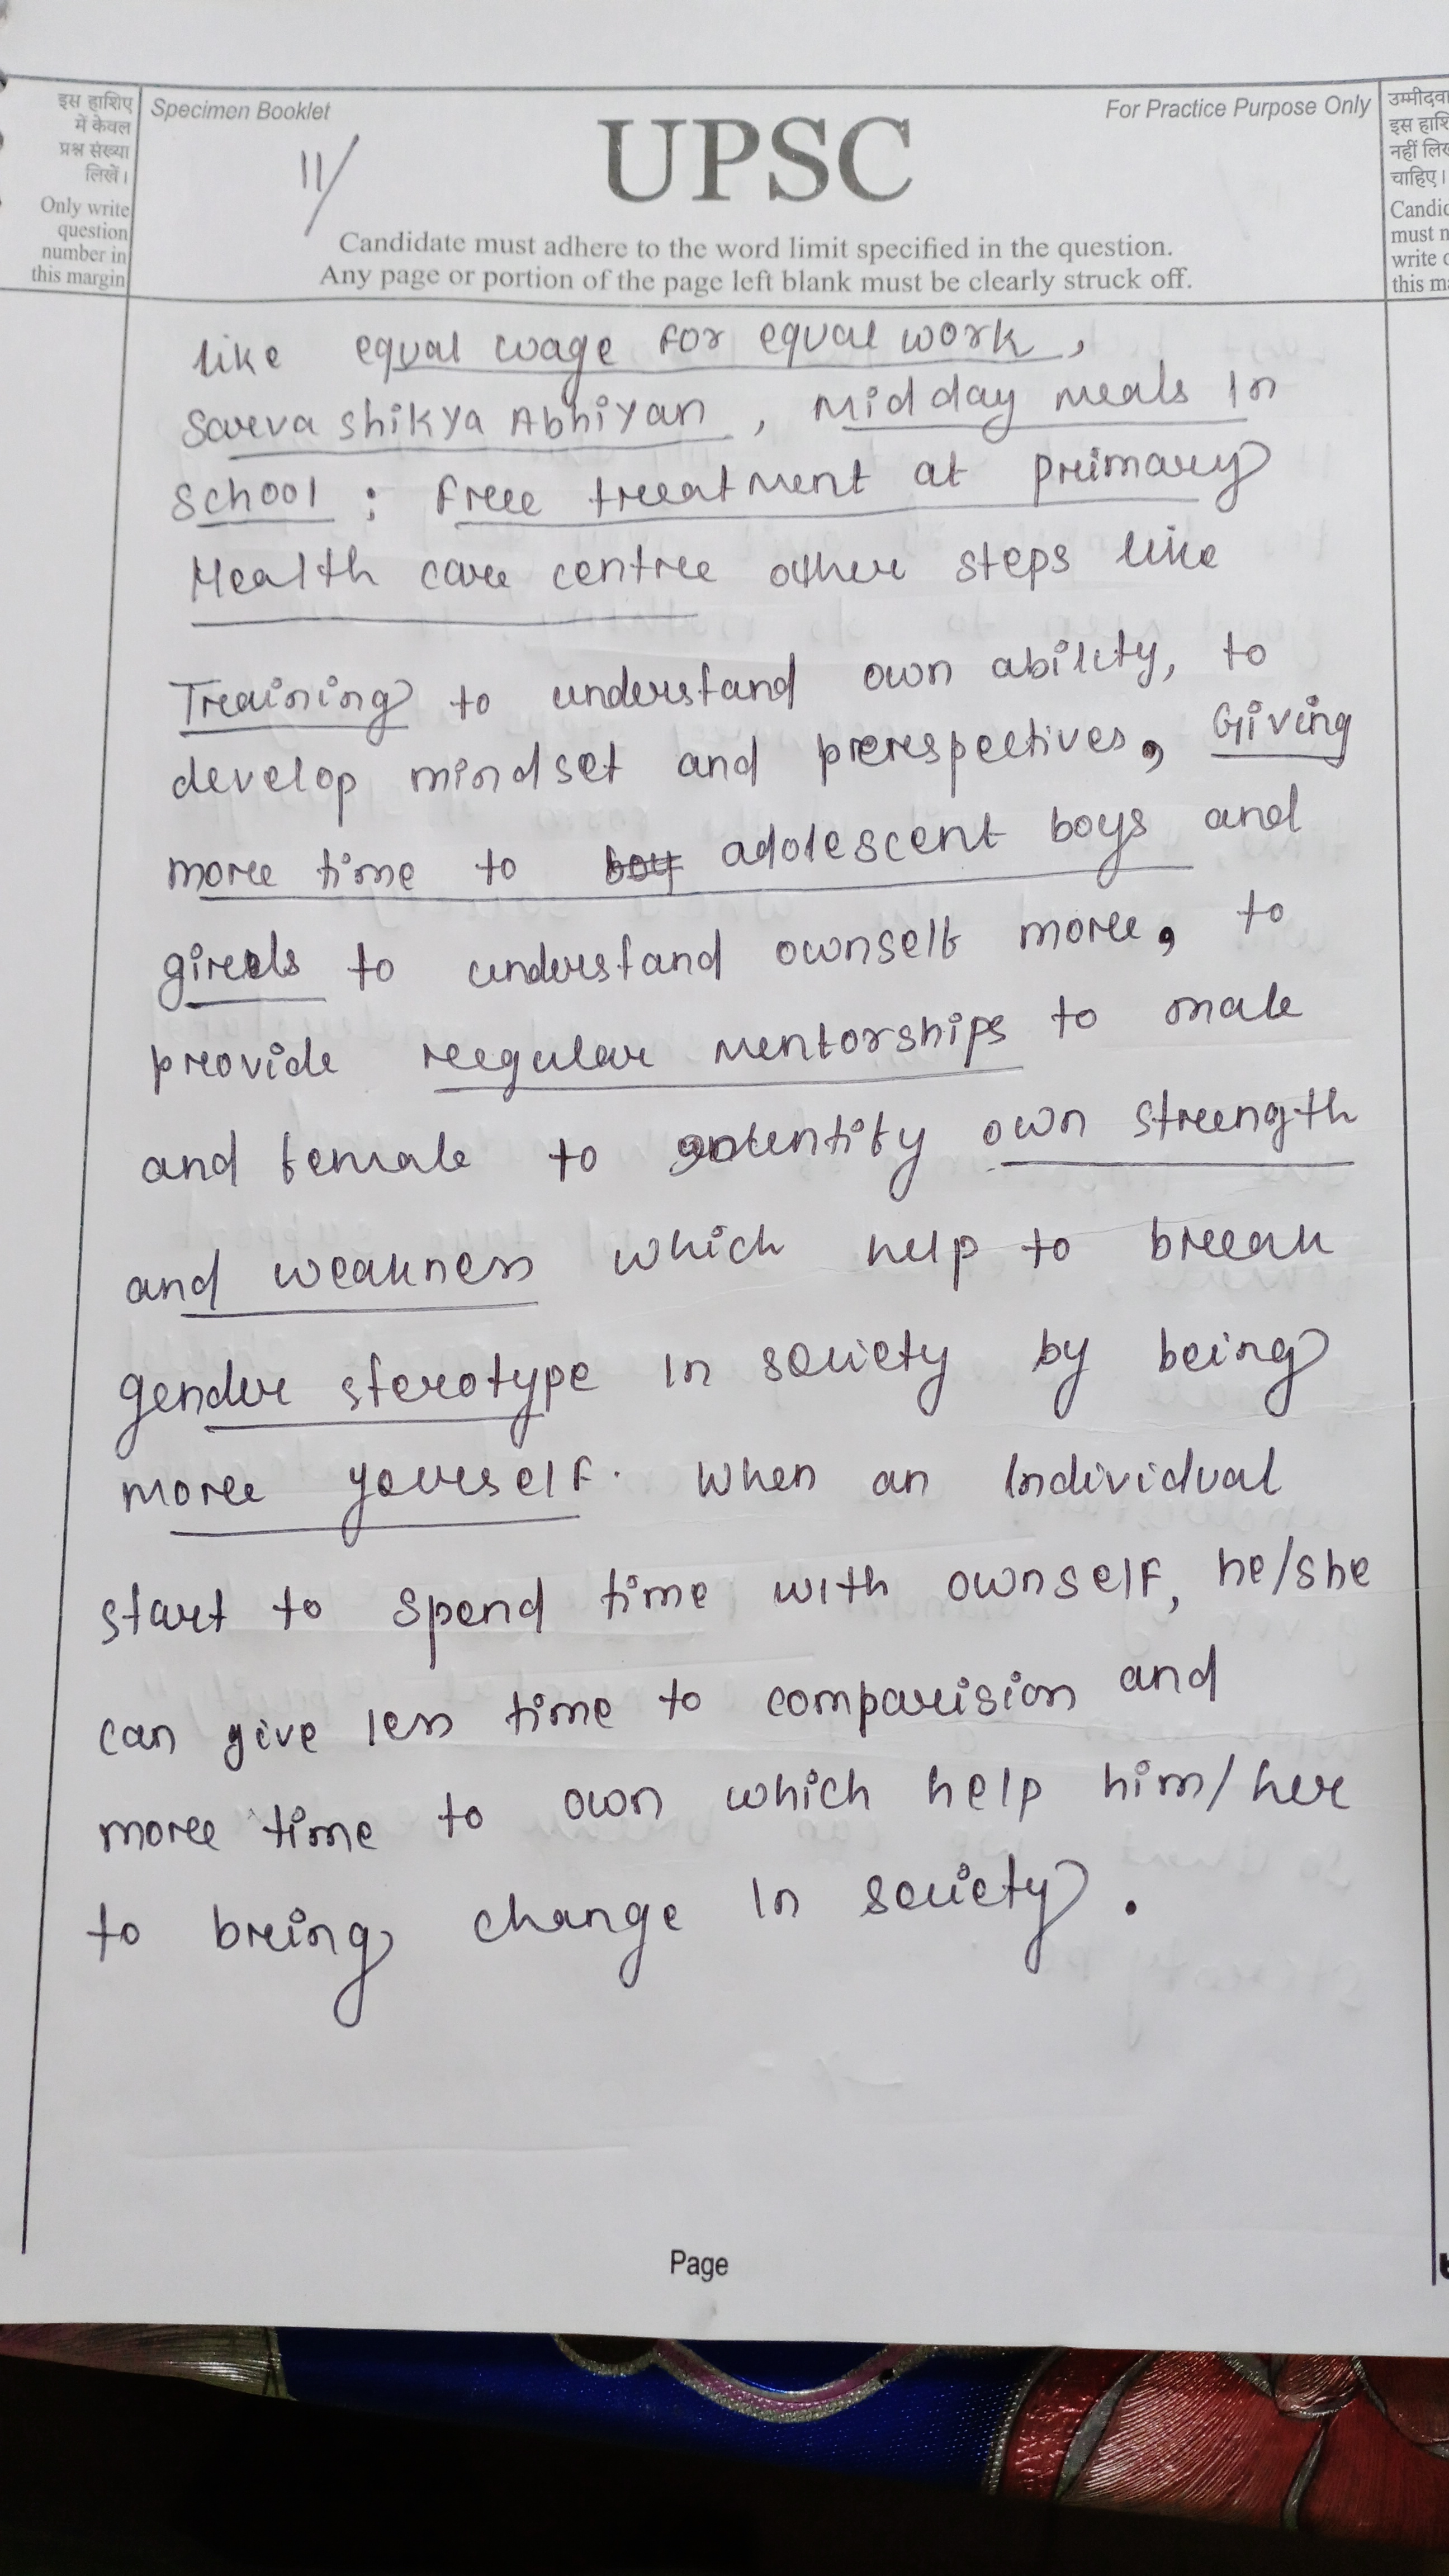 इस हाशिए
में केवल
प्रश्न संख्या
लिखें।
Only write
question
number in
this margin
Specimen Booklet
11/
UPSC
For Practice Purpose Only
Candidate must adhere to the word limit specified in the question.
Any page or portion of the page left blank must be clearly struck off.
उम्मीदवा
इस हाशि
नहीं लिख
चाहिए।
Candid
must n
write o
this ma
like equal wage for equal work,
Sarva shikya Abhiyan, Mid day meals In
school; free treatment at primary
Health care centre other steps like
Training to understand own ability, to
develop mindset and prerespectives, Giving
more time to boy adolescent boys and
girls to understand ownself more, to
provide regular mentorships to male
and female to identify own strength
and weakness which help to break
gender sterotype in society by being
more yourself. When an Individual
start to spend time with ownself, he/she
can give less time to comparision and
more time to own which help him/her
to bring change in society.
Page